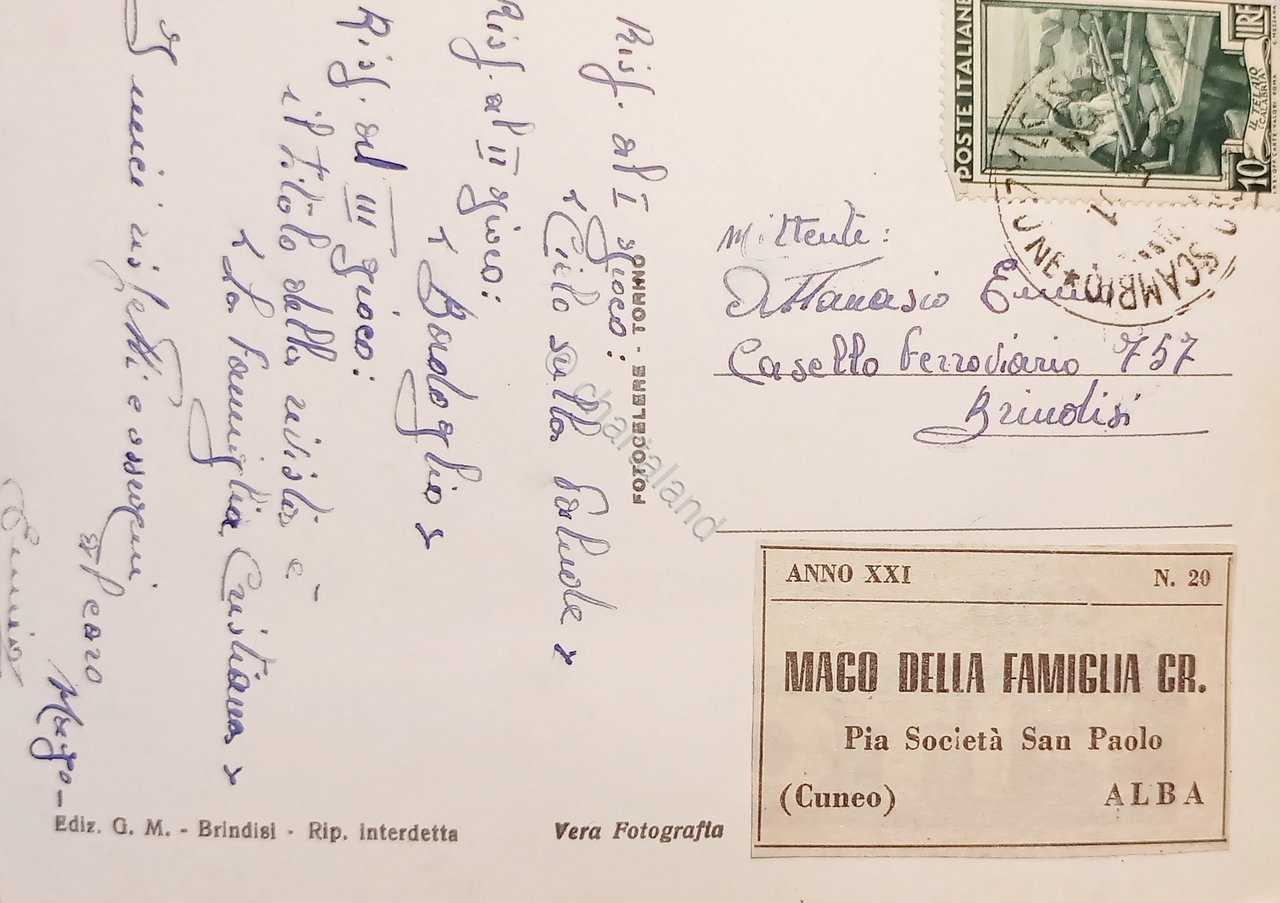 Risp. al I gioco:
« Cielo sulla Palude »
Risp. al II gioco:
« Bardoglio »
Risp. al III gioco:
il titolo della rivista è
« La Famiglia Cristiana »
I miei rispetti e ossequi
caro
Mago-
POSTE ITALIANE
LIRE
10
CALABRIA
SCAMBIO
Mittente:
Attanasio
Casello Ferroviario 757
Brindisi
FOTOCELERE - TORINO
© chartaland
ANNO XXI N. 20
MAGO DELLA FAMIGLIA CR.
Pia Società San Paolo
(Cuneo) ALBA
Ediz. G. M. - Brindisi - Rip. interdetta
Vera Fotografia